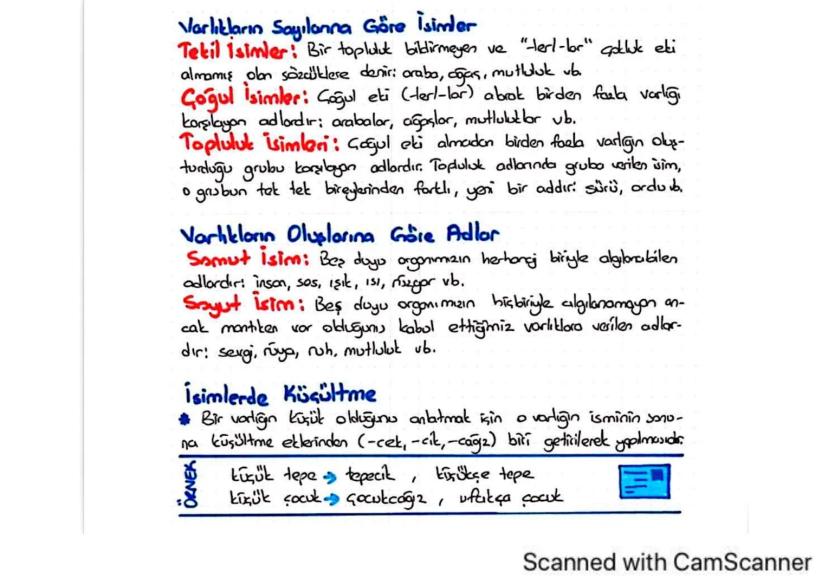 Varlıkların Sayılarına Göre İsimler
Tekil İsimler: Bir topluluk bildirmeyen ve "-ler/-lar" çokluk eki
almamış olan sözcüklere denir: araba, ağaç, mutluluk vb.
Çoğul İsimler: Çoğul eki (-ler/-lar) alarak birden fazla varlığı
karşılayan adlardır: arabalar, ağaçlar, mutluluklar vb.
Topluluk İsimleri: Çoğul eki almadan birden fazla varlığın oluş-
turduğu grubu karşılayan adlardır. Topluluk adlarında gruba verilen isim,
o grubun tek tek bireylerinden farklı, yeni bir addır: sürü, ordu vb.
Varlıkların Oluşlarına Göre Adlar
Somut İsim: Beş duyu organımızın herhangi biriyle algılanabilen
adlardır: insan, ses, ışık, ısı, rüzgar vb.
Soyut İsim: Beş duyu organımızın hiçbiriyle algılanamayan an-
cak mantıken var olduğunu kabul ettiğimiz varlıklara verilen adlar-
dır: sevgi, rüya, ruh, mutluluk vb.
İsimlerde Küçültme
* Bir varlığın küçük olduğunu anlatmak için o varlığın isminin sonu-
na küçültme eklerinden (-cek, -cik, -cağız) biri getirilerek yapılmasıdır.
ÖRNEK
küçük tepe → tepecik, küçükçe tepe
küçük çocuk → çocukcağız, ufakça çocuk
Scanned with CamScanner